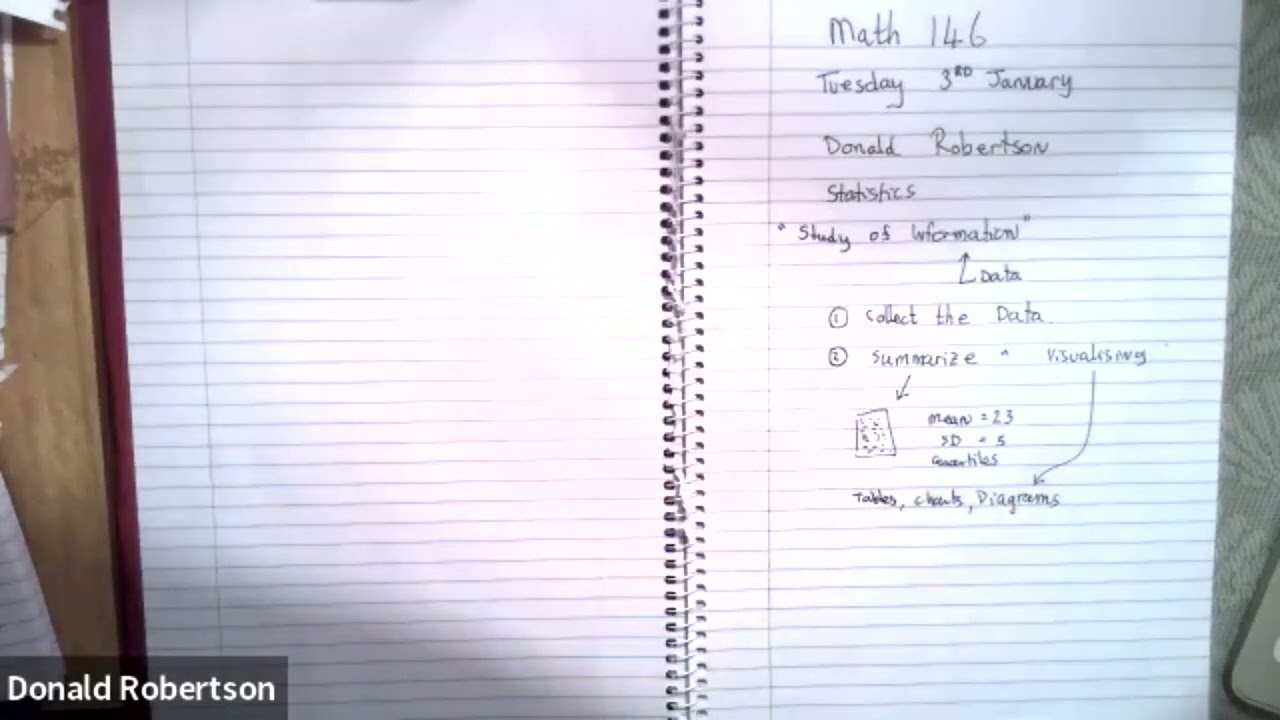 Math 146
Tuesday 3RD January
Donald Robertson
Statistics
"Study of Information"
Data
① Collect the Data
② Summarize " Visualising
mean = 23
SD = 5
Quartiles
Tables, Charts, Diagrams
Donald Robertson